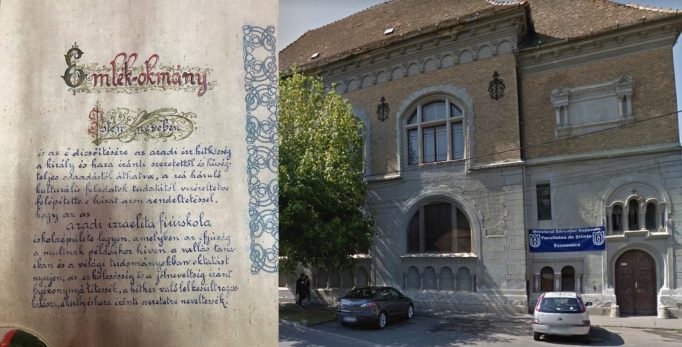 Emlék-okmány
Isten nevében
és az ő dicsőítésére az aradi izr. hitközség
a király és haza iránti szeretettől és hűség-
teljes odaadástól áthatva, a reá háruló
kulturális feladatok tudatától vezéreltetve
felépítette e házat azon rendeltetéssel,
hogy az az
aradi izraelita fiúiskola
iskolaépülete legyen, amelyben az ifjúság
a multnak példáihoz híven a vallás tana-
iban és a világi tudományokban oktatást
nyerjen, az erkölcsösség és a felnevelésig iránt
fogékonnyá tétessék, a hithez való lelkesült ragasz-
kodásra, a király és haza iránti szeretetre neveltessék.
Ministerul Educației Naționale
Facultatea de Științe
Economice